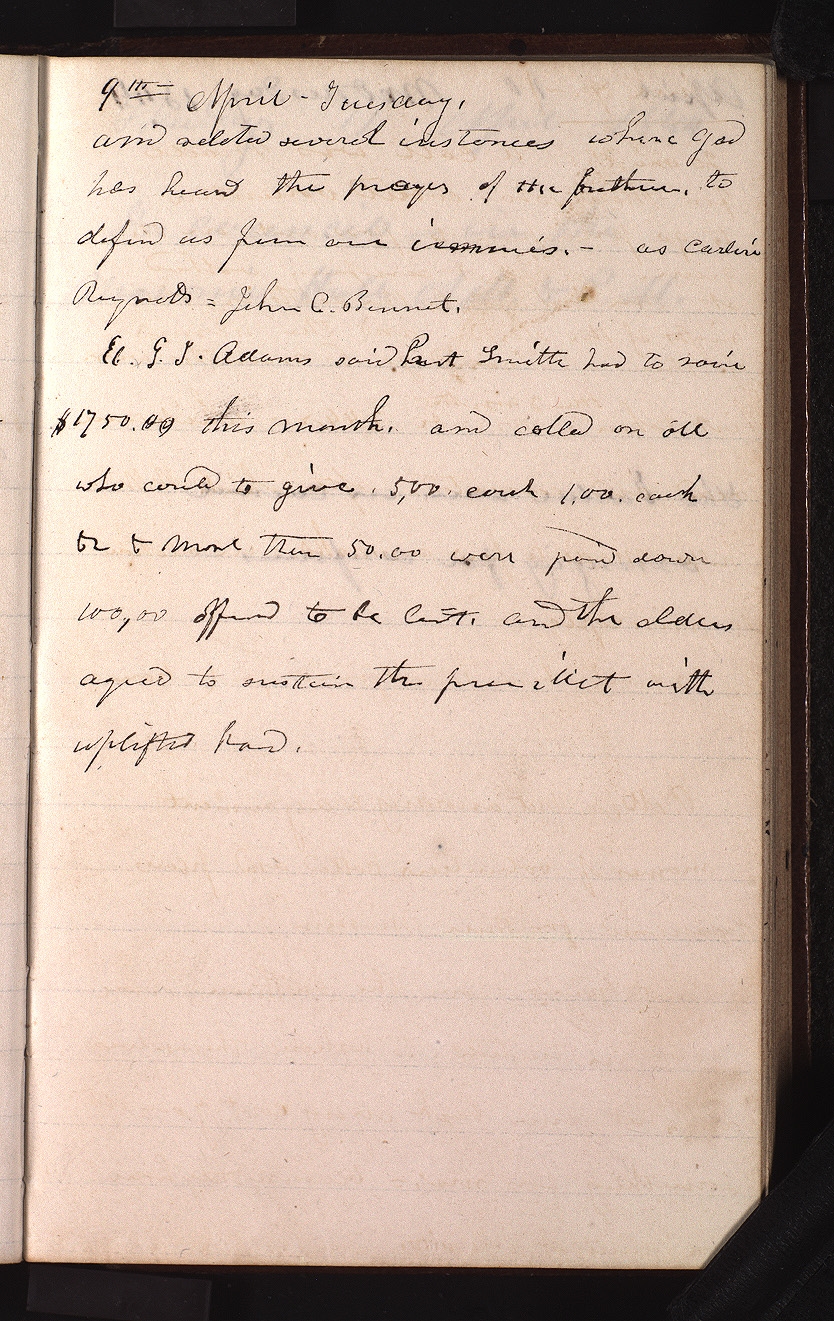 9th April - Tuesday,
and related several instances where God
has heard the prayer of the brethren. to
defend us from our enemies. - as Carlin
Reynolds = John C. Bennet.
El. G. J. Adams said Prest Smith had to raise
$1750.00 this month. and called on all
who could to give. 5,00. each 1,00. each
&c & more than 50.00 were paid down
100,00 offered to be lent. and the elders
agreed to sustain the with
uplifted hand.